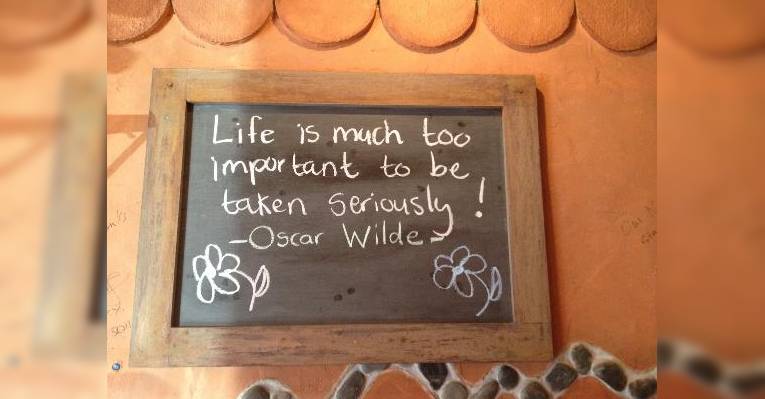 Life is much too
important to be
taken seriously!
-Oscar Wilde-